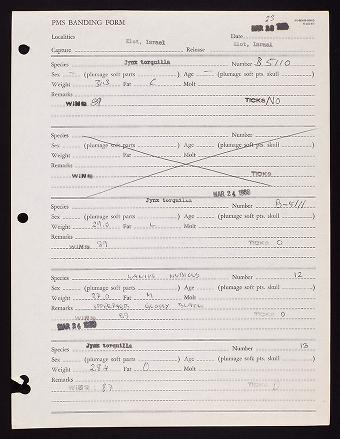 PMS BANDING FORM
23
Localities Date MAR 23
Elot, Israel Elot, Israel
Capture Release
Species Jynx torquilla Number B 5110
Sex — (plumage soft parts ) Age — (plumage soft pts. skull )
Weight Fat Molt
Remarks
WING 89 TICKS NO
Species Number
Sex (plumage soft parts ) Age (plumage soft pts. skull )
Weight Fat Molt
Remarks
WING TICKS
MAR 24 1969
Species Jynx torquilla Number B-5111
Sex (plumage soft parts ) Age (plumage soft pts. skull )
Weight 29.0 Fat L Molt
Remarks
WING 89 TICKS 0
Species LANIUS NUBICUS Number 12
Sex (plumage soft parts ) Age (plumage soft pts. skull )
Weight 27.0 Fat M Molt
Remarks GLOSSY BLACK
WING 89 TICKS 0
MAR 24
Species Jynx torquilla Number 13
Sex (plumage soft parts ) Age (plumage soft pts. skull )
Weight 28.4 Fat 0 Molt
Remarks
WING 87 TICKS 0